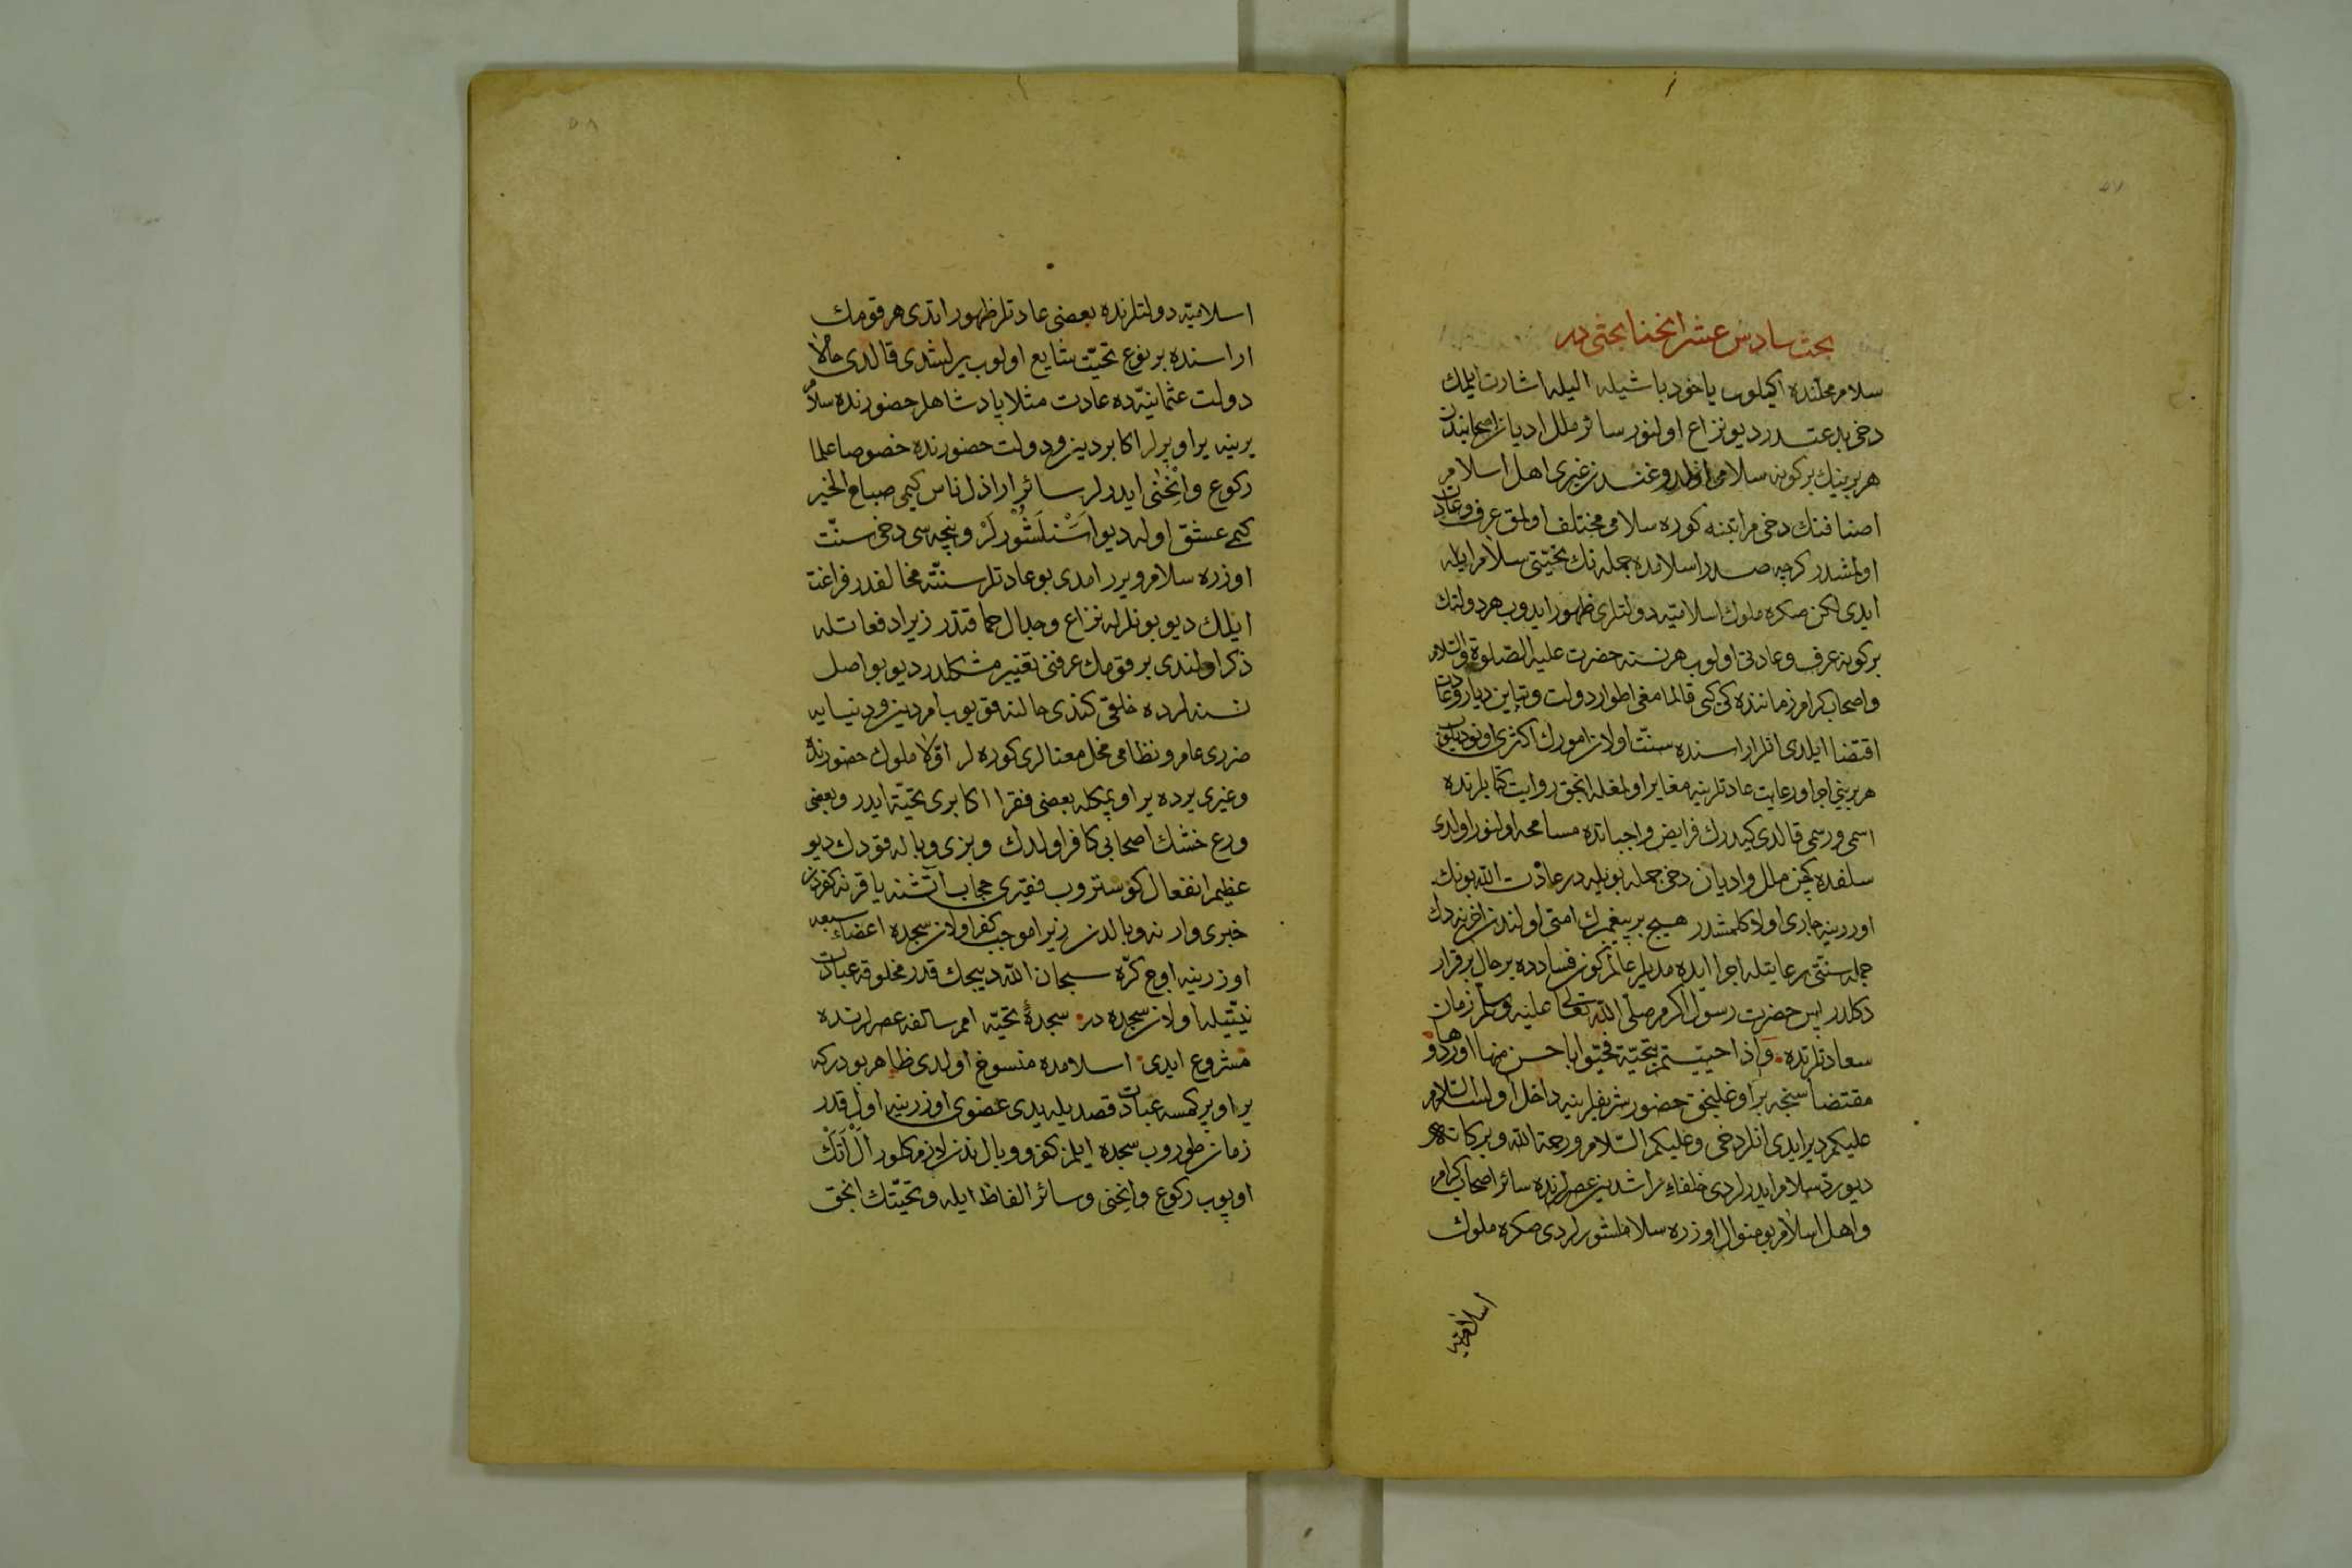 ٥٧
بحث سادس عشر انحنا بحثی در
سلام محلنده اکیلوب یاخود باشیله الیله اشارت ایلمك
دخی بدعتدر دیو نزاع اولنور سائر ملل ادیان اصحابندن
هر برینك برکونه سلامی اولدوغندن غیری اهل اسلام
اصنافنك دخی مراتبنه کوره سلامی مختلف اولمق عرف وعادت
اولمشدر کرچه صدر اسلامده جمله نك تحیتی سلام ایله
ایدی لکن صکره ملوك اسلامیه دولتلری ظهور ایدوب هر دولتك
برکونه عرف وعادتی اولوب هر نسنه حضرت علیه الصلوة والسلام
واصحاب کرام زماننده کی کبی قالمامغی اطوار دولت وتباین دیار وعادت
اقتضا ایلدی انلر اراسنده سنت اولان امورك اکثری اونودیلوب
هر برینی اجرا ورعایت عادتلرینه مغایر اولمغله انجق روایت کتابلرنده
اسمی ورسمی قالدی کیدرك فرایض واجباتده مسامحه اولنور اولدی
سلفده کچن ملل وادیان دخی جمله بویله در عادت الله بونك
اوزرینه جاری اولا کلمشدر هیچ بر پیغمبرك امتی اولندن اخرنه دك
جمله سنتی رعایتله اجرا ایده مدیلر عالم کون فسادده بر حال برقرار
دکلدر پس حضرت رسول اکرم صلی الله تعالی علیه وسلم زمان
سعادتلرنده واذا حییتم بتحیة فحیوا باحسن منها اوردوها
مقتضاسنجه بر اوغلینجق حضور شریفلرینه داخل اولسه السلام
علیکم دیر ایدی انلر دخی وعلیکم السلام ورحمة الله وبرکاته
دیو رد سلام ایدرلردی خلفاء راشدین عصرلرنده سائر اصحاب کرام
واهل اسلام بو منوال اوزره سلاملشورلردی صکره ملوك
اسلامیه
٥٨
اسلامیه دولتلرنده بعضی عادتلر ظهور ایتدی هر قومك
اراسنده بر نوع تحیت شایع اولوب یرلشدی قالدی حالا
دولت عثمانیه ده عادت مثلا پادشاهلر حضورنده سلام
یرینه یر اوپرلر اکابر دین ودولت حضورنده خصوصا علما
رکوع وانحنی ایدرلر سائر اراذل ناس کیمی صباح الخیر
کیمی عشق اوله دیو اسنلشورلر ونیچه سی دخی سنت
اوزره سلام ویرر امدی بو عادتلر سنته مخالفدر فراغت
ایلك دیو بونلرله نزاع وجدال حماقتدر زیرا دفعاتله
ذکر اولندی بر قومك عرفنی تغییر مشکلدر دیو بو اصل
نسنه لرده خلقی کندی حالنه قویوب امر دین ودنیایه
ضرری عام ونظامی مخل معنالری کوره لر اولا ملوك حضورنده
وغیری یرده یر اوپمکله بعضی فقرا اکابری تحیة ایدر وبعضی
ورع خشك اصحابی کافر اولدك وبزی وباله قودك دیو
عظیم انفعال کوستروب فقیری حجاب آتشنه یاقر نه کفردن
خبری وار نه وبالدن زیرا موجب کفر اولان سجده اعضاء سبعه
اوزرینه اوچ کره سبحان الله دییجك قدر مخلوقه عبادت
نیتیله اولان سجده در سجدۀ تحیه امم سالفه عصرلرنده
مشروع ایدی اسلامده منسوخ اولدی ظاهر بودرکه
یر اوپر کمسه عبادت قصدیله یدی عضوی اوزرینه اول قدر
زمان طوروب سجده ایلمز کفر ووبال ندن لازم کلور ال اتك
اوپوب رکوع وانحنی وسائر الفاظ ایله وتحیتك انجق